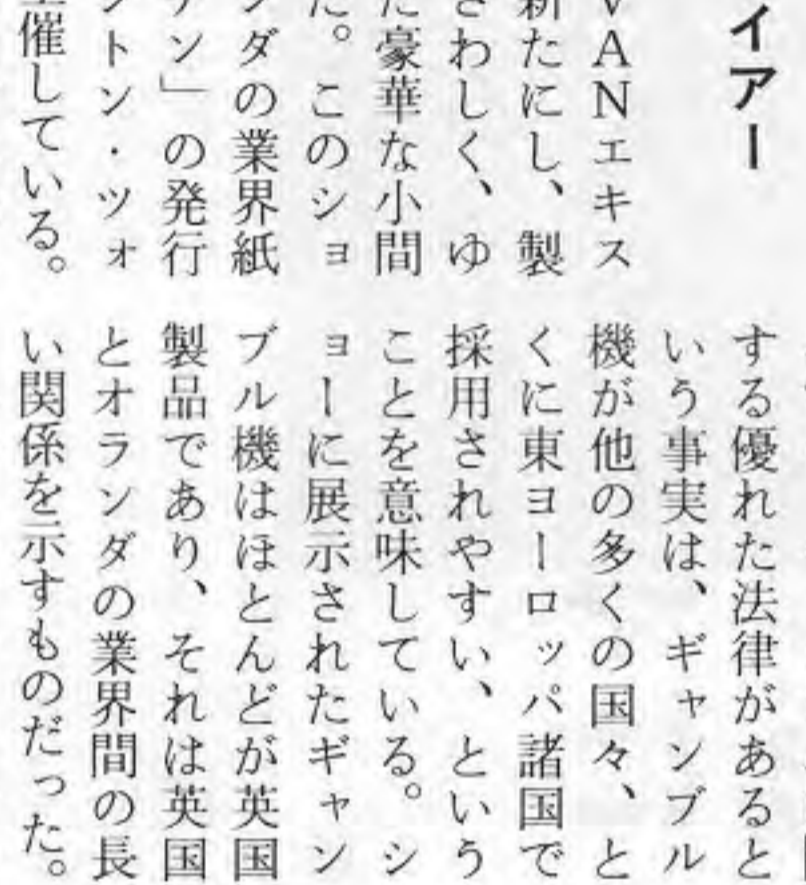 イアー
VANエキス
新たにし、製
さわしく、ゆ
た豪華な小間
た。このショ
ンダの業界紙
ン」の発行
ントン・ツォ
主催している。
する優れた法律があると
いう事実は、ギャンブル
機が他の多くの国々、と
くに東ヨーロッパ諸国で
採用されやすい、という
ことを意味している。シ
ョーに展示されたギャン
ブル機はほとんどが英国
製品であり、それは英国
とオランダの業界間の長
い関係を示すものだった。